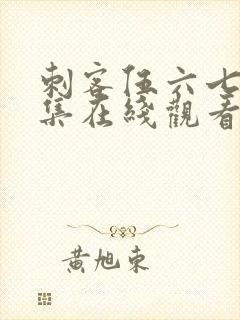 刺客伍六七
集在綫觀看
黄旭東